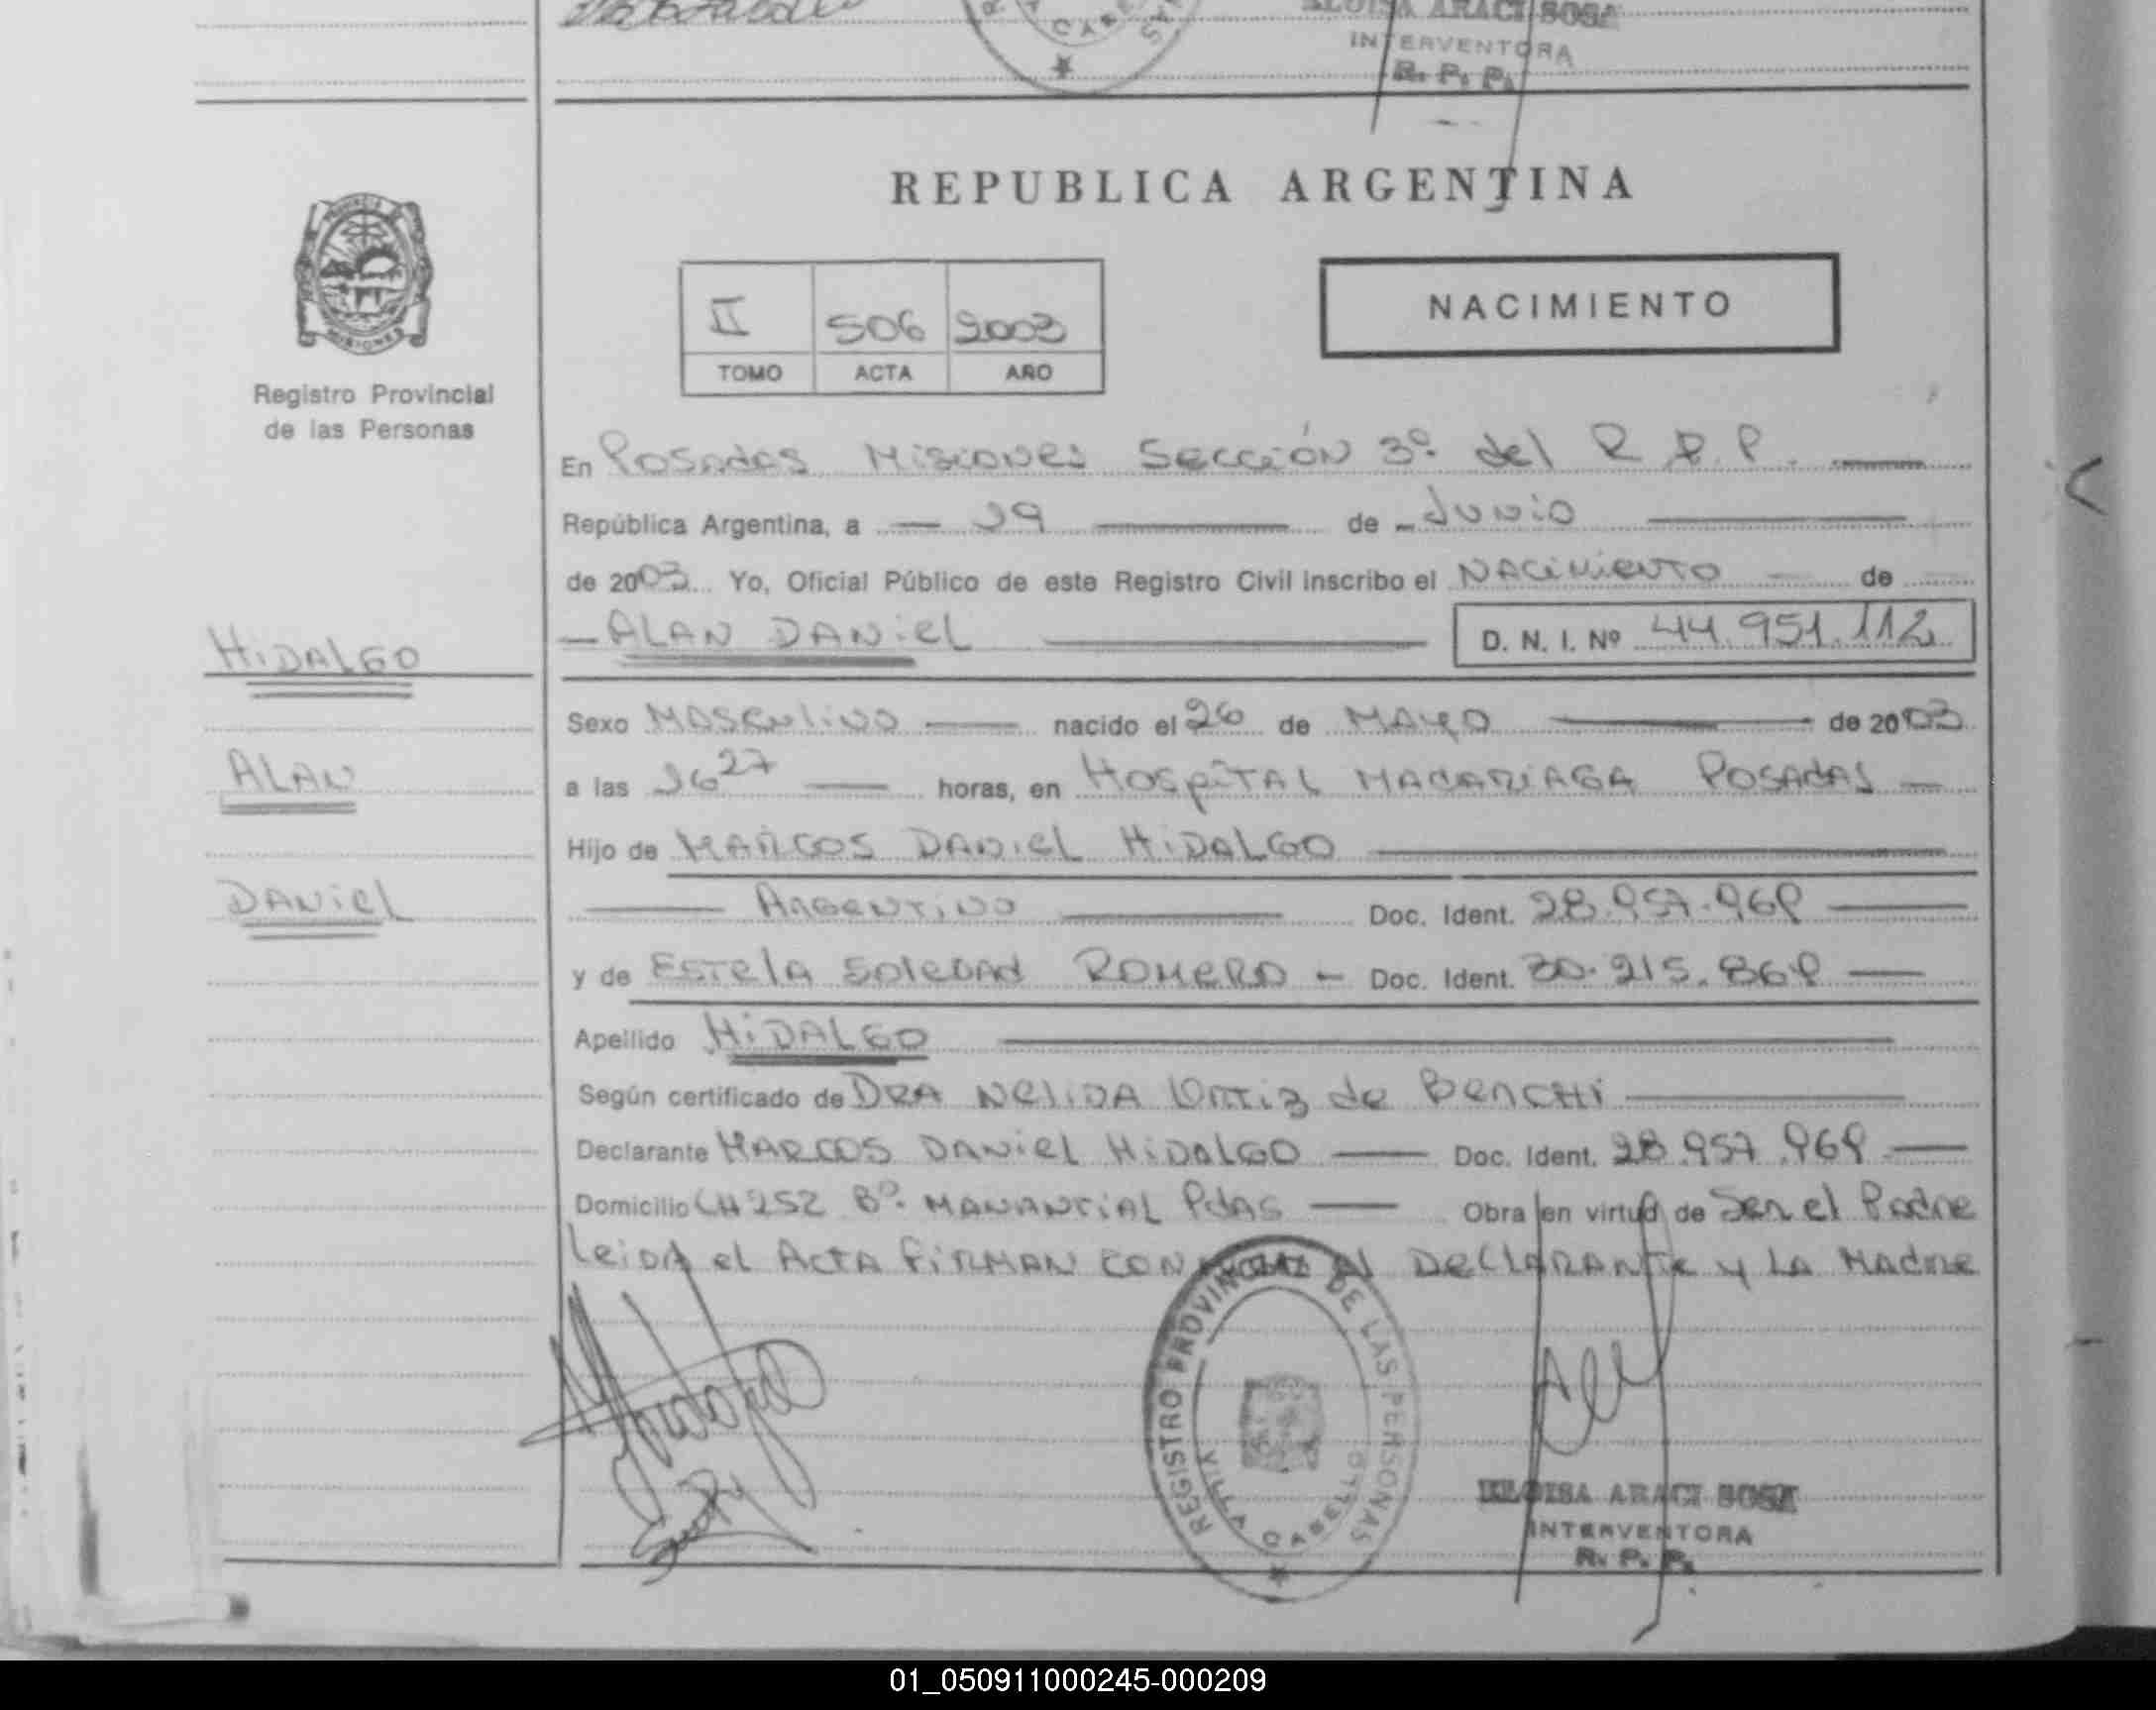 ELOISA ARACI SOSA
INTERVENTORA
R. P. P.
REPUBLICA ARGENTINA
II 506 2003
TOMO ACTA AÑO
NACIMIENTO
Registro Provincial
de las Personas
En Posadas Misiones Sección 3º del R.P.P.
República Argentina, a 19 de Junio
de 2003 Yo, Oficial Público de este Registro Civil inscribo el NACimieNTO de
ALAN DANiel D. N. I. Nº 44.951.112
HiDALGO
Sexo MASCuliNO nacido el 26 de MAYO de 2003
ALAN
a las 16 27 horas, en HOSpiTAL MADARIAGA POSADAS
Hijo de MARCOS DANiel HiDALGO
DANiel
ARGENTiNO Doc. Ident. 28.957.969
y de ESTelA SOleDAd ROMERO - Doc. Ident. 30.215.869
Apellido HiDALGO
Según certificado de DRA NeliDA ORTiz de BenCHi
Declarante MARCOS DANiel HiDALGO Doc. Ident. 28.957.969
Domicilio CH 252 Bº MANANTiAL PdAS Obra en virtud de Ser el Padre
leiDA el ActA FiRMAN CONMigo el DeClARANTe y LA MAdre
REGISTRO PROVINCIAL DE LAS PERSONAS
VILLA CABELLO
ELOISA ARACI SOSA
INTERVENTORA
R. P. P.
01_050911000245-000209